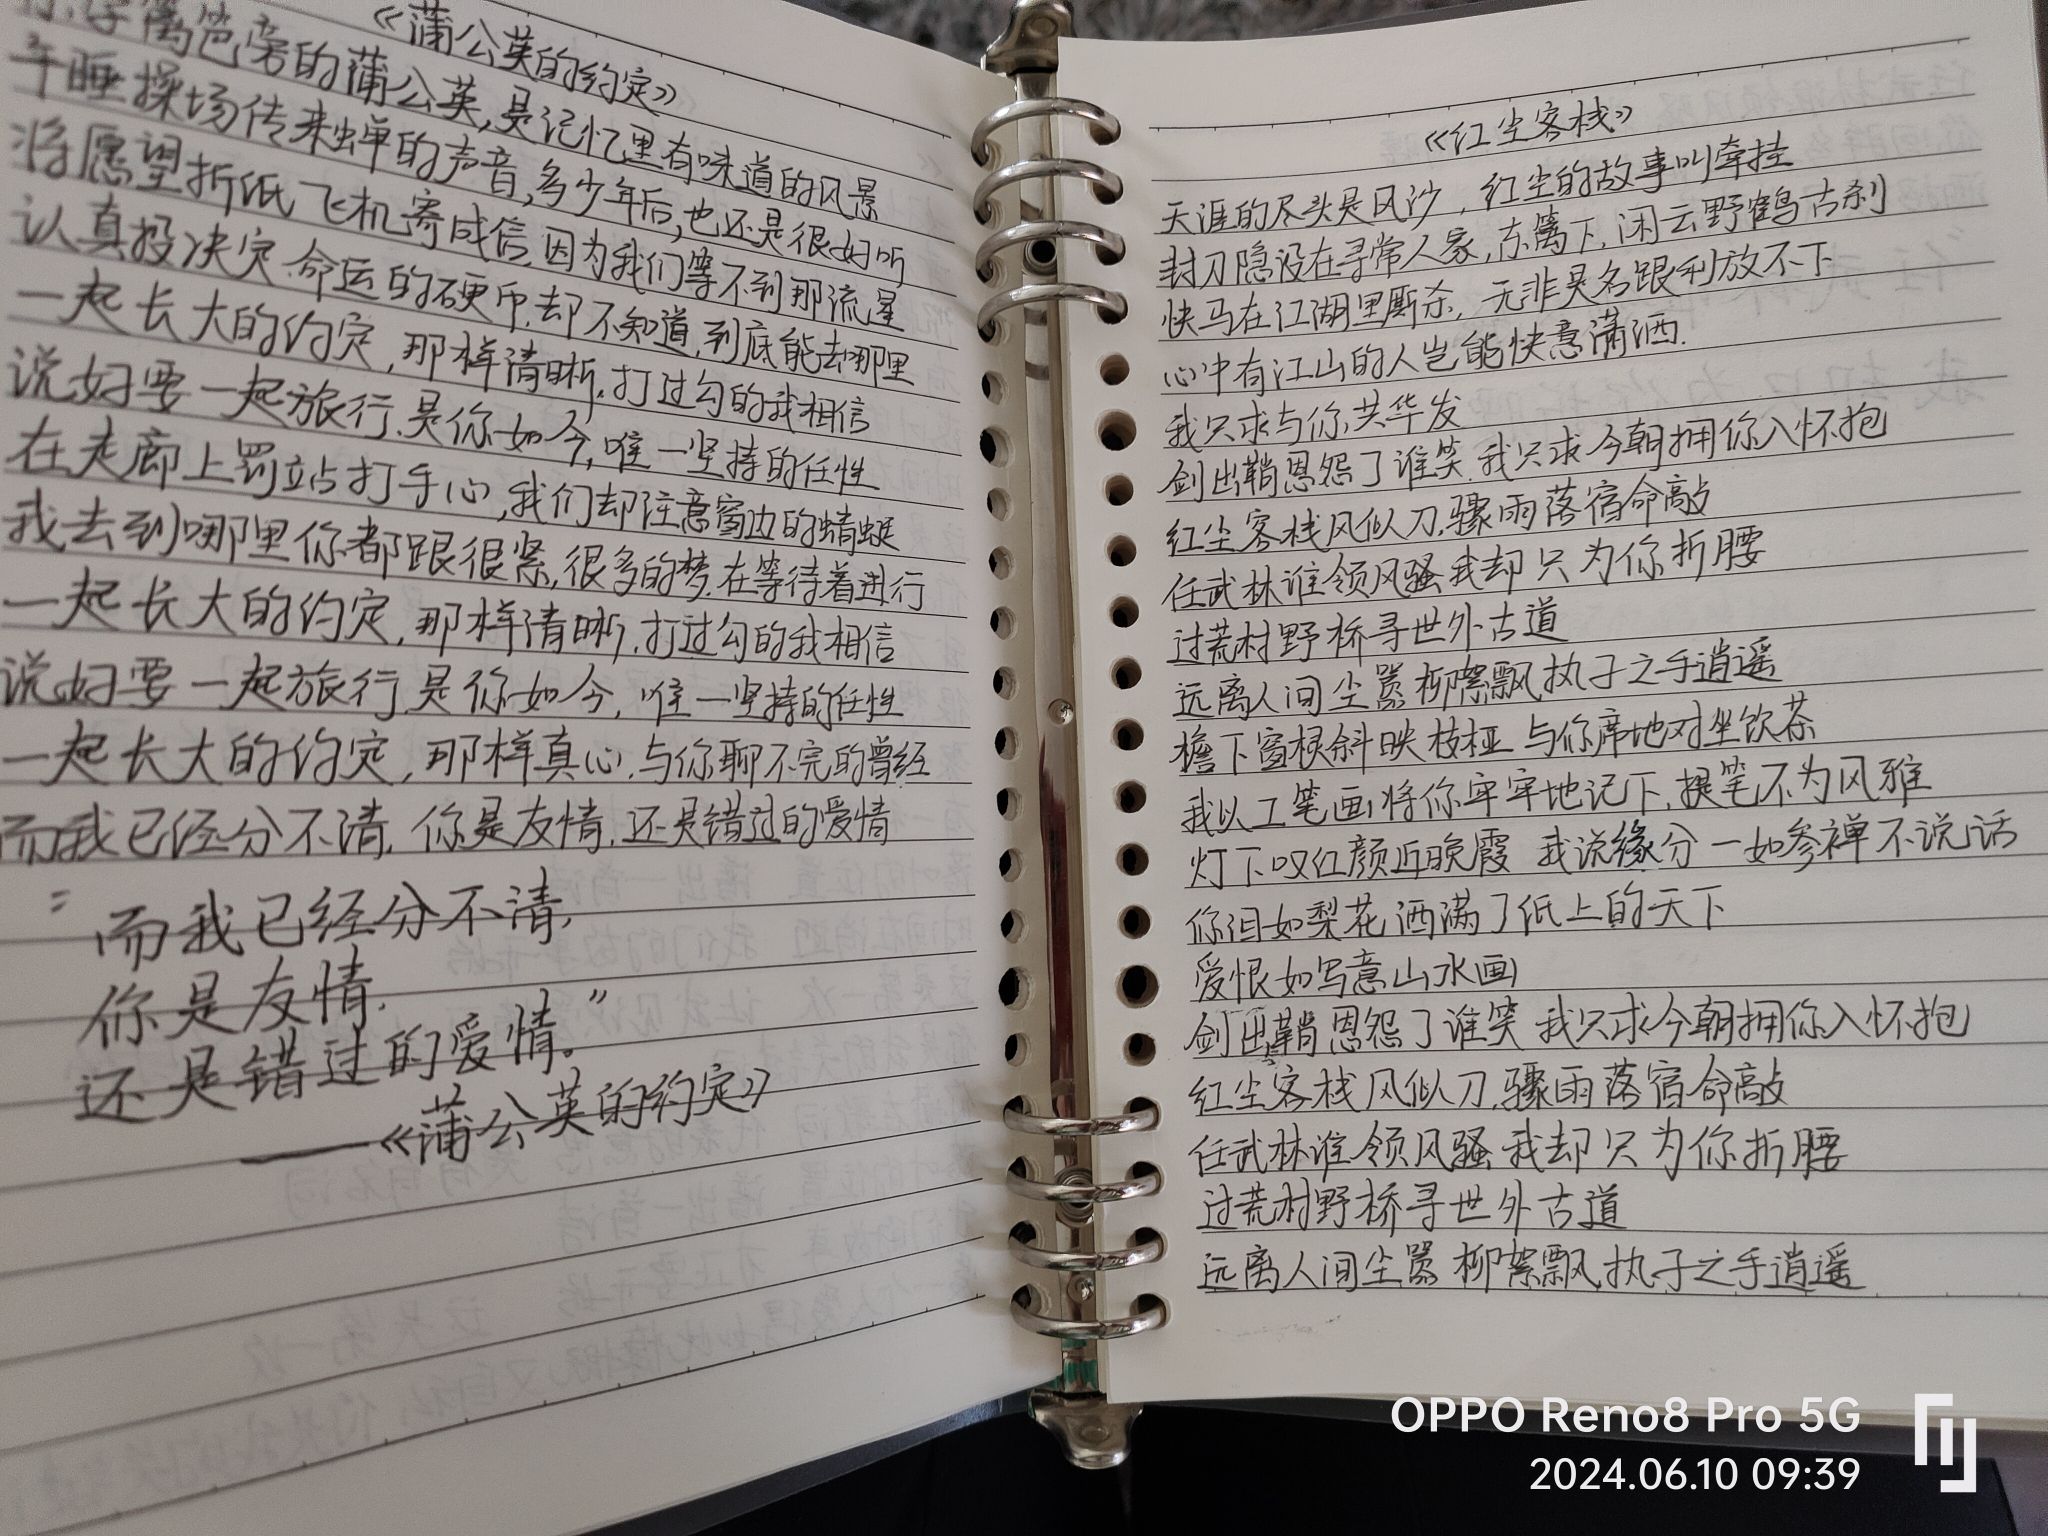 《蒲公英的约定》
篱笆旁的蒲公英,是记忆里有味道的风景
午睡操场传来蝉的声音,多少年后,也还是很好听
将愿望折纸飞机寄成信,因为我们等不到那流星
认真投决定命运的硬币,却不知道,到底能去哪里
一起长大的约定,那样清晰,打过勾的我相信
说好要一起旅行,是你如今,唯一坚持的任性
在走廊上罚站打手心,我们却注意窗边的蜻蜓
我去到哪里你都跟很紧,很多的梦,在等待着进行
一起长大的约定,那样清晰,打过勾的我相信
说好要一起旅行,是你如今,唯一坚持的任性
一起长大的约定,那样真心,与你聊不完的曾经
而我已经分不清,你是友情,还是错过的爱情
“而我已经分不清,
你是友情,
还是错过的爱情。”
——《蒲公英的约定》
《红尘客栈》
天涯的尽头是风沙,红尘的故事叫牵挂
封刀隐没在寻常人家,东篱下,闲云野鹤古刹
快马在江湖里厮杀,无非是名跟利放不下
心中有江山的人岂能快意潇洒.
我只求与你共华发
剑出鞘恩怨了谁笑 我只求今朝拥你入怀抱
红尘客栈风似刀,骤雨落宿命敲
任武林谁领风骚我却只为你折腰
过荒村野桥寻世外古道
远离人间尘嚣 柳絮飘,执子之手逍遥
檐下窗棂斜映枝桠 与你席地对坐饮茶
我以工笔画将你牢牢地记下,提笔不为风雅
灯下叹红颜近晚霞 我说缘分一如参禅不说话
你泪如梨花洒满了纸上的天下
爱恨如写意山水画
剑出鞘恩怨了谁笑 我只求今朝拥你入怀抱
红尘客栈风似刀,骤雨落宿命敲
任武林谁领风骚我却只为你折腰
过荒村野桥寻世外古道
远离人间尘嚣 柳絮飘,执子之手逍遥
OPPO Reno8 Pro 5G
2024.06.10 09:39